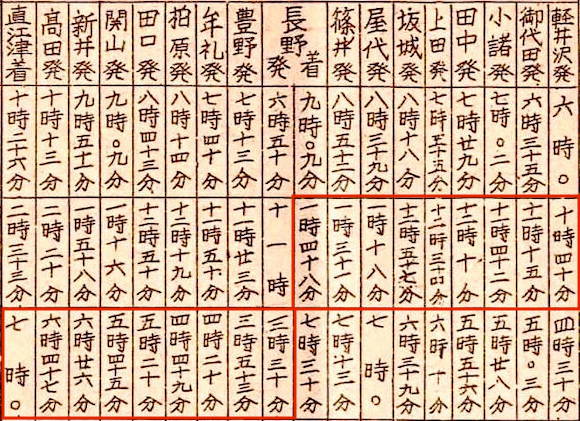 軽井沢発
御代田発
小諸発
田中発
上田発
坂城発
屋代発
篠井発
長野着発
豊野発
牟礼発
柏原発
田口発
関山発
新井発
高田発
直江津着
六時〇
六時三十五分
七時〇二分
七時廿九分
七時五十五分
八時十八分
八時三十九分
八時五十二分
九時〇九分
六時五十分
七時十三分
七時四十分
八時十四分
八時四十三分
九時〇九分
九時五十一分
十時十三分
十時二十六分
十時四十分
十一時十五分
十一時四十二分
十二時十分
十二時三十四分
十二時五十七分
一時十八分
一時三十一分
一時四十八分
十一時
十一時廿三分
十一時五十分
十二時十九分
十二時五十分
一時十六分
一時五十八分
二時二十分
二時三十三分
四時三十分
五時〇三分
五時廿八分
五時五十六分
六時十分
六時三十九分
七時〇
七時十三分
七時三十分
三時三十分
三時五十三分
四時二十分
四時四十九分
五時二十分
五時四十五分
六時廿六分
六時四十七分
七時〇